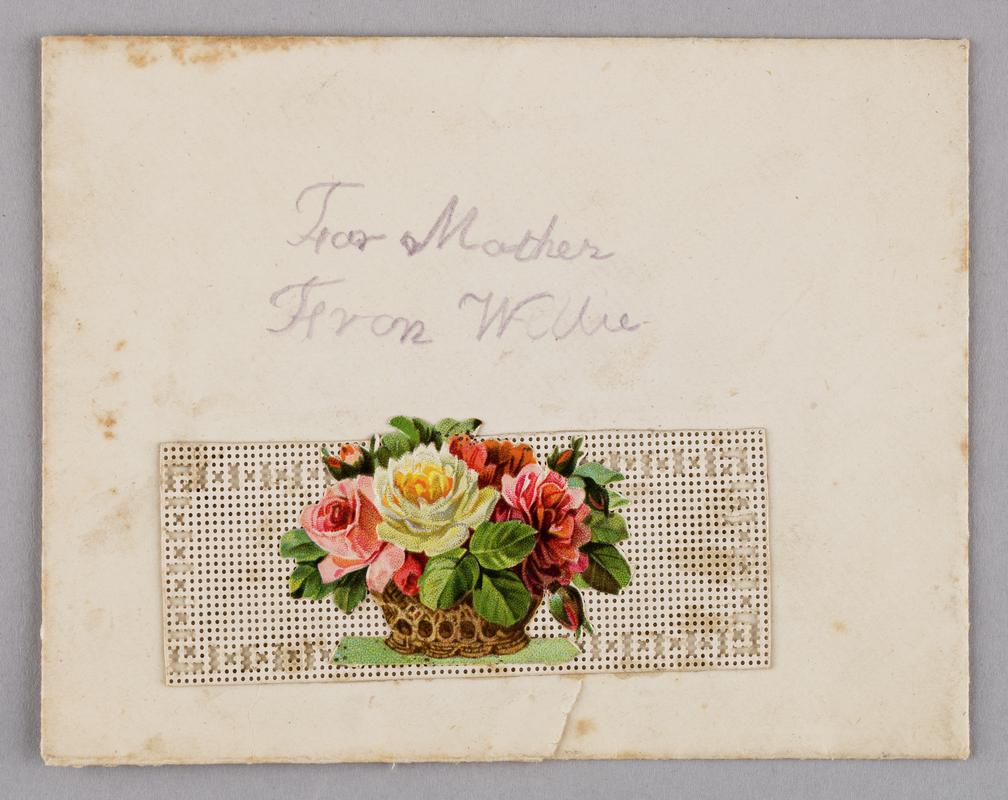 For Mother
From Willie